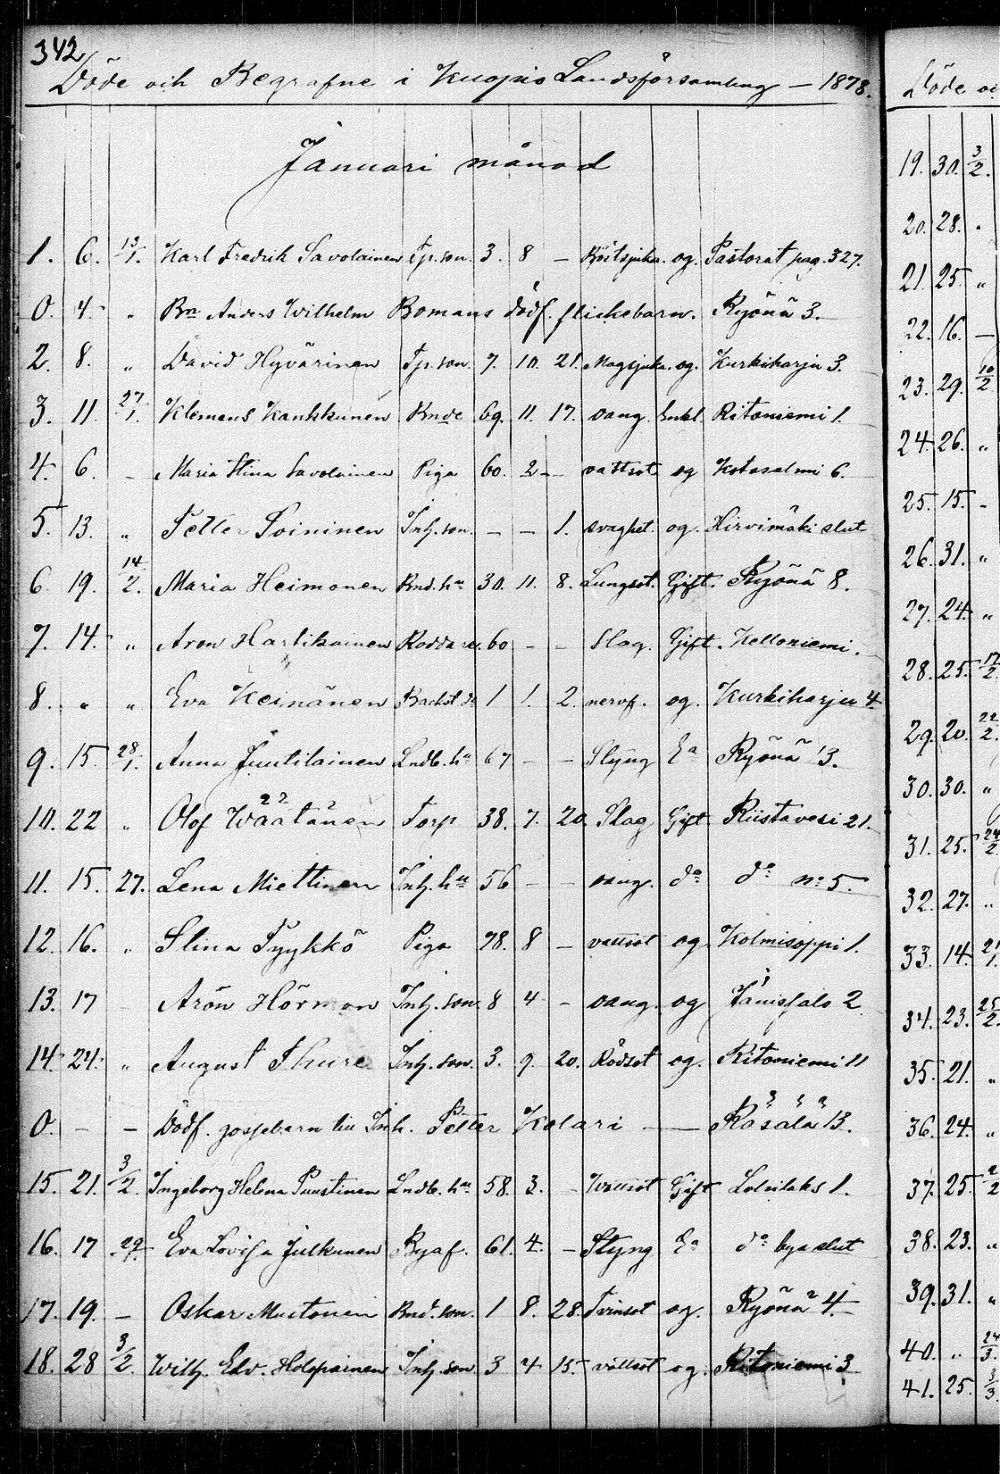 342
Döde och Begrafne i Kuopio Landsförsamling — 1878.
Januari månad
1. 6. 13/1. Karl Fredrik Savolainen Tp.son. 3. 8 — og. Pastorat pag. 327.
0. 4. " Bn Anders Wilhelm Bomans dödf. flickebarn. Ryönä 3.
2. 8. " David Hyvärinen Tp.son. 7. 10. 21. Magsjuka. og. Kurkiharju 3.
3. 11. 27/1. Klemens Kankkunen Bnde 69. 11. 17. Enkl. Ritoniemi 1.
4. 6. — Maria Stina Savolainen Piga 60. 2 — vattsot og Kotasalmi 6.
5. 13. " Petter Soininen Inh.son. — — 1. svaghet og. Hirvimäki slut
6. 19. 14/2. Maria Heimonen Bnd.hu 30. 11. 8. Lungsot. Gift. Ryönä 8.
7. 14. " Aron Hartikainen Roddare. 60 — — Slag. Gift. Kelloniemi.
8. " " Eva Keinänen 1 1. 2. nervf. og. Kurkiharju 4.
9. 15. 28/1. Anna Juutilainen Lndb.hu 67 — — Styng Ea Ryönä 13.
10. 22 " Olof Wäätänen Torp 38. 7. 20. Slag Gift. Riistavesi 21.
11. 15. 27. Lena Miettinen Inh.hu 56 — — do do no 5.
12. 16. " Stina Tyykkö Piga 78. 8 — vattsot og Kolmisoppi 1.
13. 17 — Aron Hörman Inh.son. 8 4 — og Jänissalo 2
14. 24. " August Thure Inh.son. 3. 9. 20. Rödsot og. Ritoniemi 11
0. — — Dödf. gossebarn till Inh. Petter Kolari — Räsälä 13.
15. 21. 3/2. Ingeborg Helena Puustinen Lndb.hu 58. 3. — Gift 1.
16. 17 29/1. Eva Lovisa Julkunen 61. 4. — Styng Ea do bya slut
17. 19. — Oskar Mutonen Bnd.son. 1 8. 28. og. Ryönä 4
18. 28 3/2. Wilh. Edv. Holopainen Inh.son 3 4 15. vattsot og. Ritoniemi 3
Döde oc
19. 30. 3/2.
20. 28. "
21. 25. "
22. 16. —
23. 29. 10/2
24. 26. "
25. 15. —
26. 31. "
27. 24. "
28. 25. 17/2
29. 20. 22/2.
30. 30. "
31. 25. 24/2
32. 27. "
33. 14. 21/1.
34. 23. 25/2.
35. 21. "
36. 24. "
37. 25. 2/2
38. 23. "
39. 31. "
40. " 24/3.
41. 25. 3/3